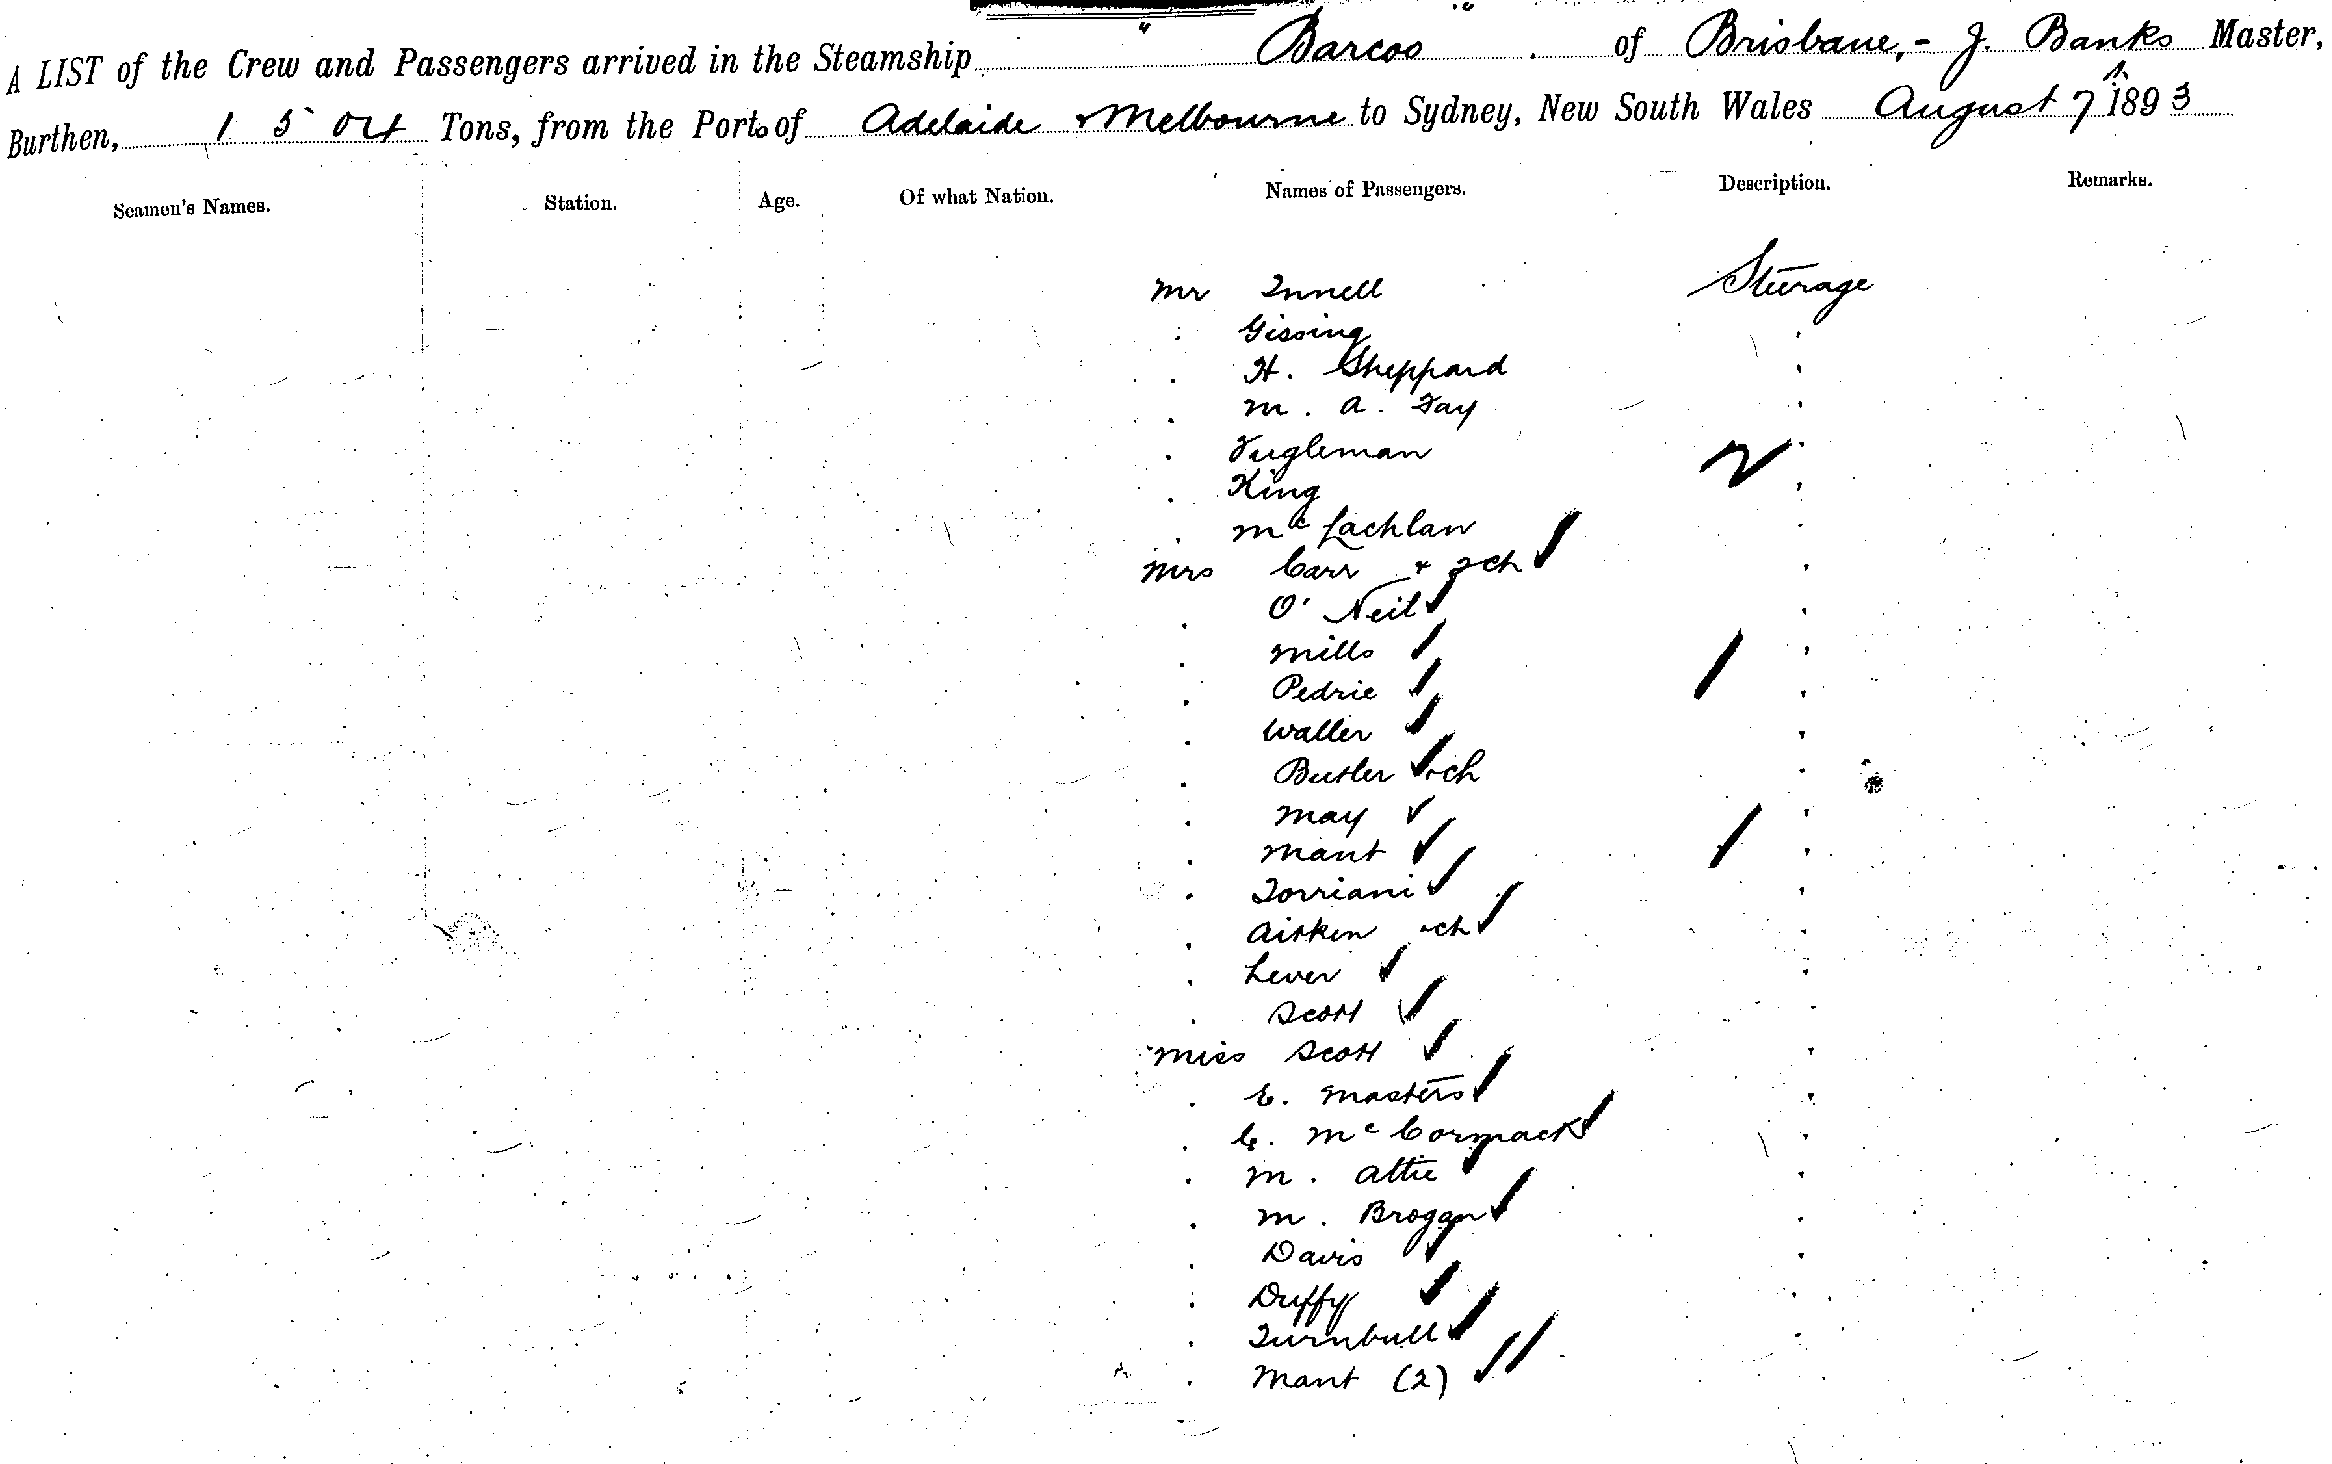 A LIST of the Crew and Passengers arrived in the Steamship "Barcoo" of Brisbane, - J. Banks Master,
Burthen, 1504 Tons, from the Port of Adelaide & Melbourne to Sydney, New South Wales August 7 1893
Seamen's Names. Station. Age. Of what Nation. Names of Passengers. Description. Remarks.
Mr Innell Steerage
Gissing
H. Sheppard
M. A. Fay
King
McLachlan
Mrs Carr & 2 ch
O'Neil
Mills
Pedrie
Waller
Butler & ch
May
Mant
Torriani
Aitken & ch
Lever
Scott
Miss Scott
E. Masters
C. McCormack
M. Attie
M. Brogan
Davis
Duffy
Turnbull
Mant (2)